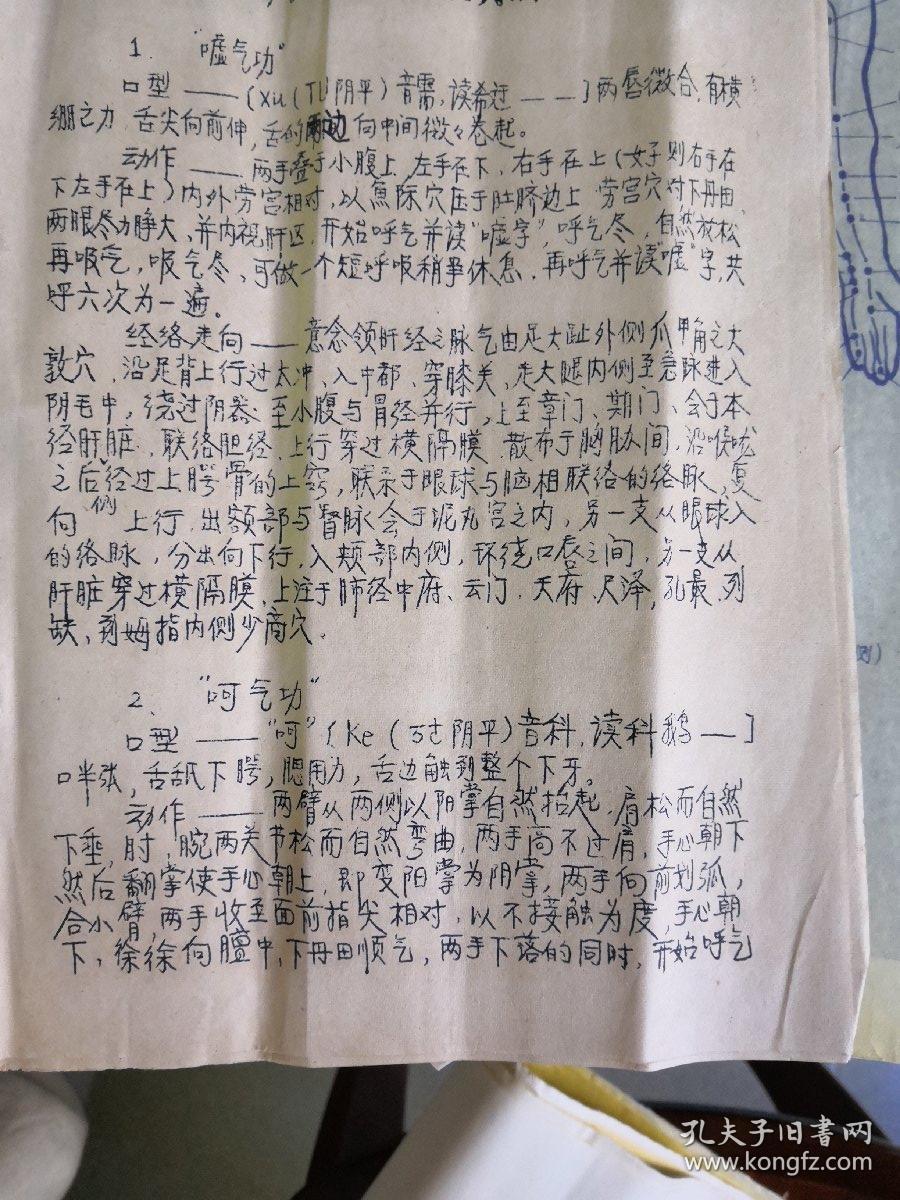 1. "嘘气功"
口型 —— (xu(ㄒㄩ阴平)音需,读希迂 — —] 两唇微合,有横
绷之力,舌尖向前伸,舌的两边向中间微々卷起。
动作 —— 两手叠于小腹上,左手在下,右手在上(女子则右手在
下左手在上)内外劳宫相对,以鱼际穴压于肚脐边上,劳宫穴对下丹田,
两眼尽力睁大,并内视肝区,开始呼气并读"嘘字",呼气尽,自然放松
再吸气,吸气尽,可做一个短呼吸稍事休息,再呼气并读"嘘"字,共
呼六次为一遍。
经络走向 —— 意念领肝经之脉气由足大趾外侧爪甲角之大
敦穴,沿足背上行过太冲、入中都、穿膝关,走大腿内侧至急脉进入
阴毛中,绕过阴器,至小腹与胃经并行,上至章门、期门、会于本
经肝脏,联络胆经,上行穿过横隔膜,散布于胸胁间,沿喉咙
之后经过上腭骨的上窍,联系于眼球与脑相联络的络脉,复
向侧上行,出额部与督脉会于泥丸宫之内,另一支从眼球入
的络脉,分出向下行,入颊部内侧,环绕口唇之间,另一支从
肝脏穿过横隔膜,上注于肺经中府、云门、天府、尺泽,孔最、列
缺、到姆指内侧少商穴。
2. "呵气功"
口型 —— "呵"(Ke(ㄎㄜ阴平)音科,读科鹅 —]
口半张,舌舐下腭,腮用力,舌边触到整个下牙。
动作 —— 两臂从两侧以阴掌自然抬起,肩松而自然
下垂,肘,腕两关节松而自然弯曲,两手高不过肩,手心朝下
然后翻掌使手心朝上,即变阳掌为阴掌,两手向前划弧,
合小臂,两手收至面前指尖相对,以不接触为度,手心朝
下,徐徐向膻中,下丹田顺气,两手下落的同时,开始呼气
侧)
孔夫子旧书网
www.kongfz.com